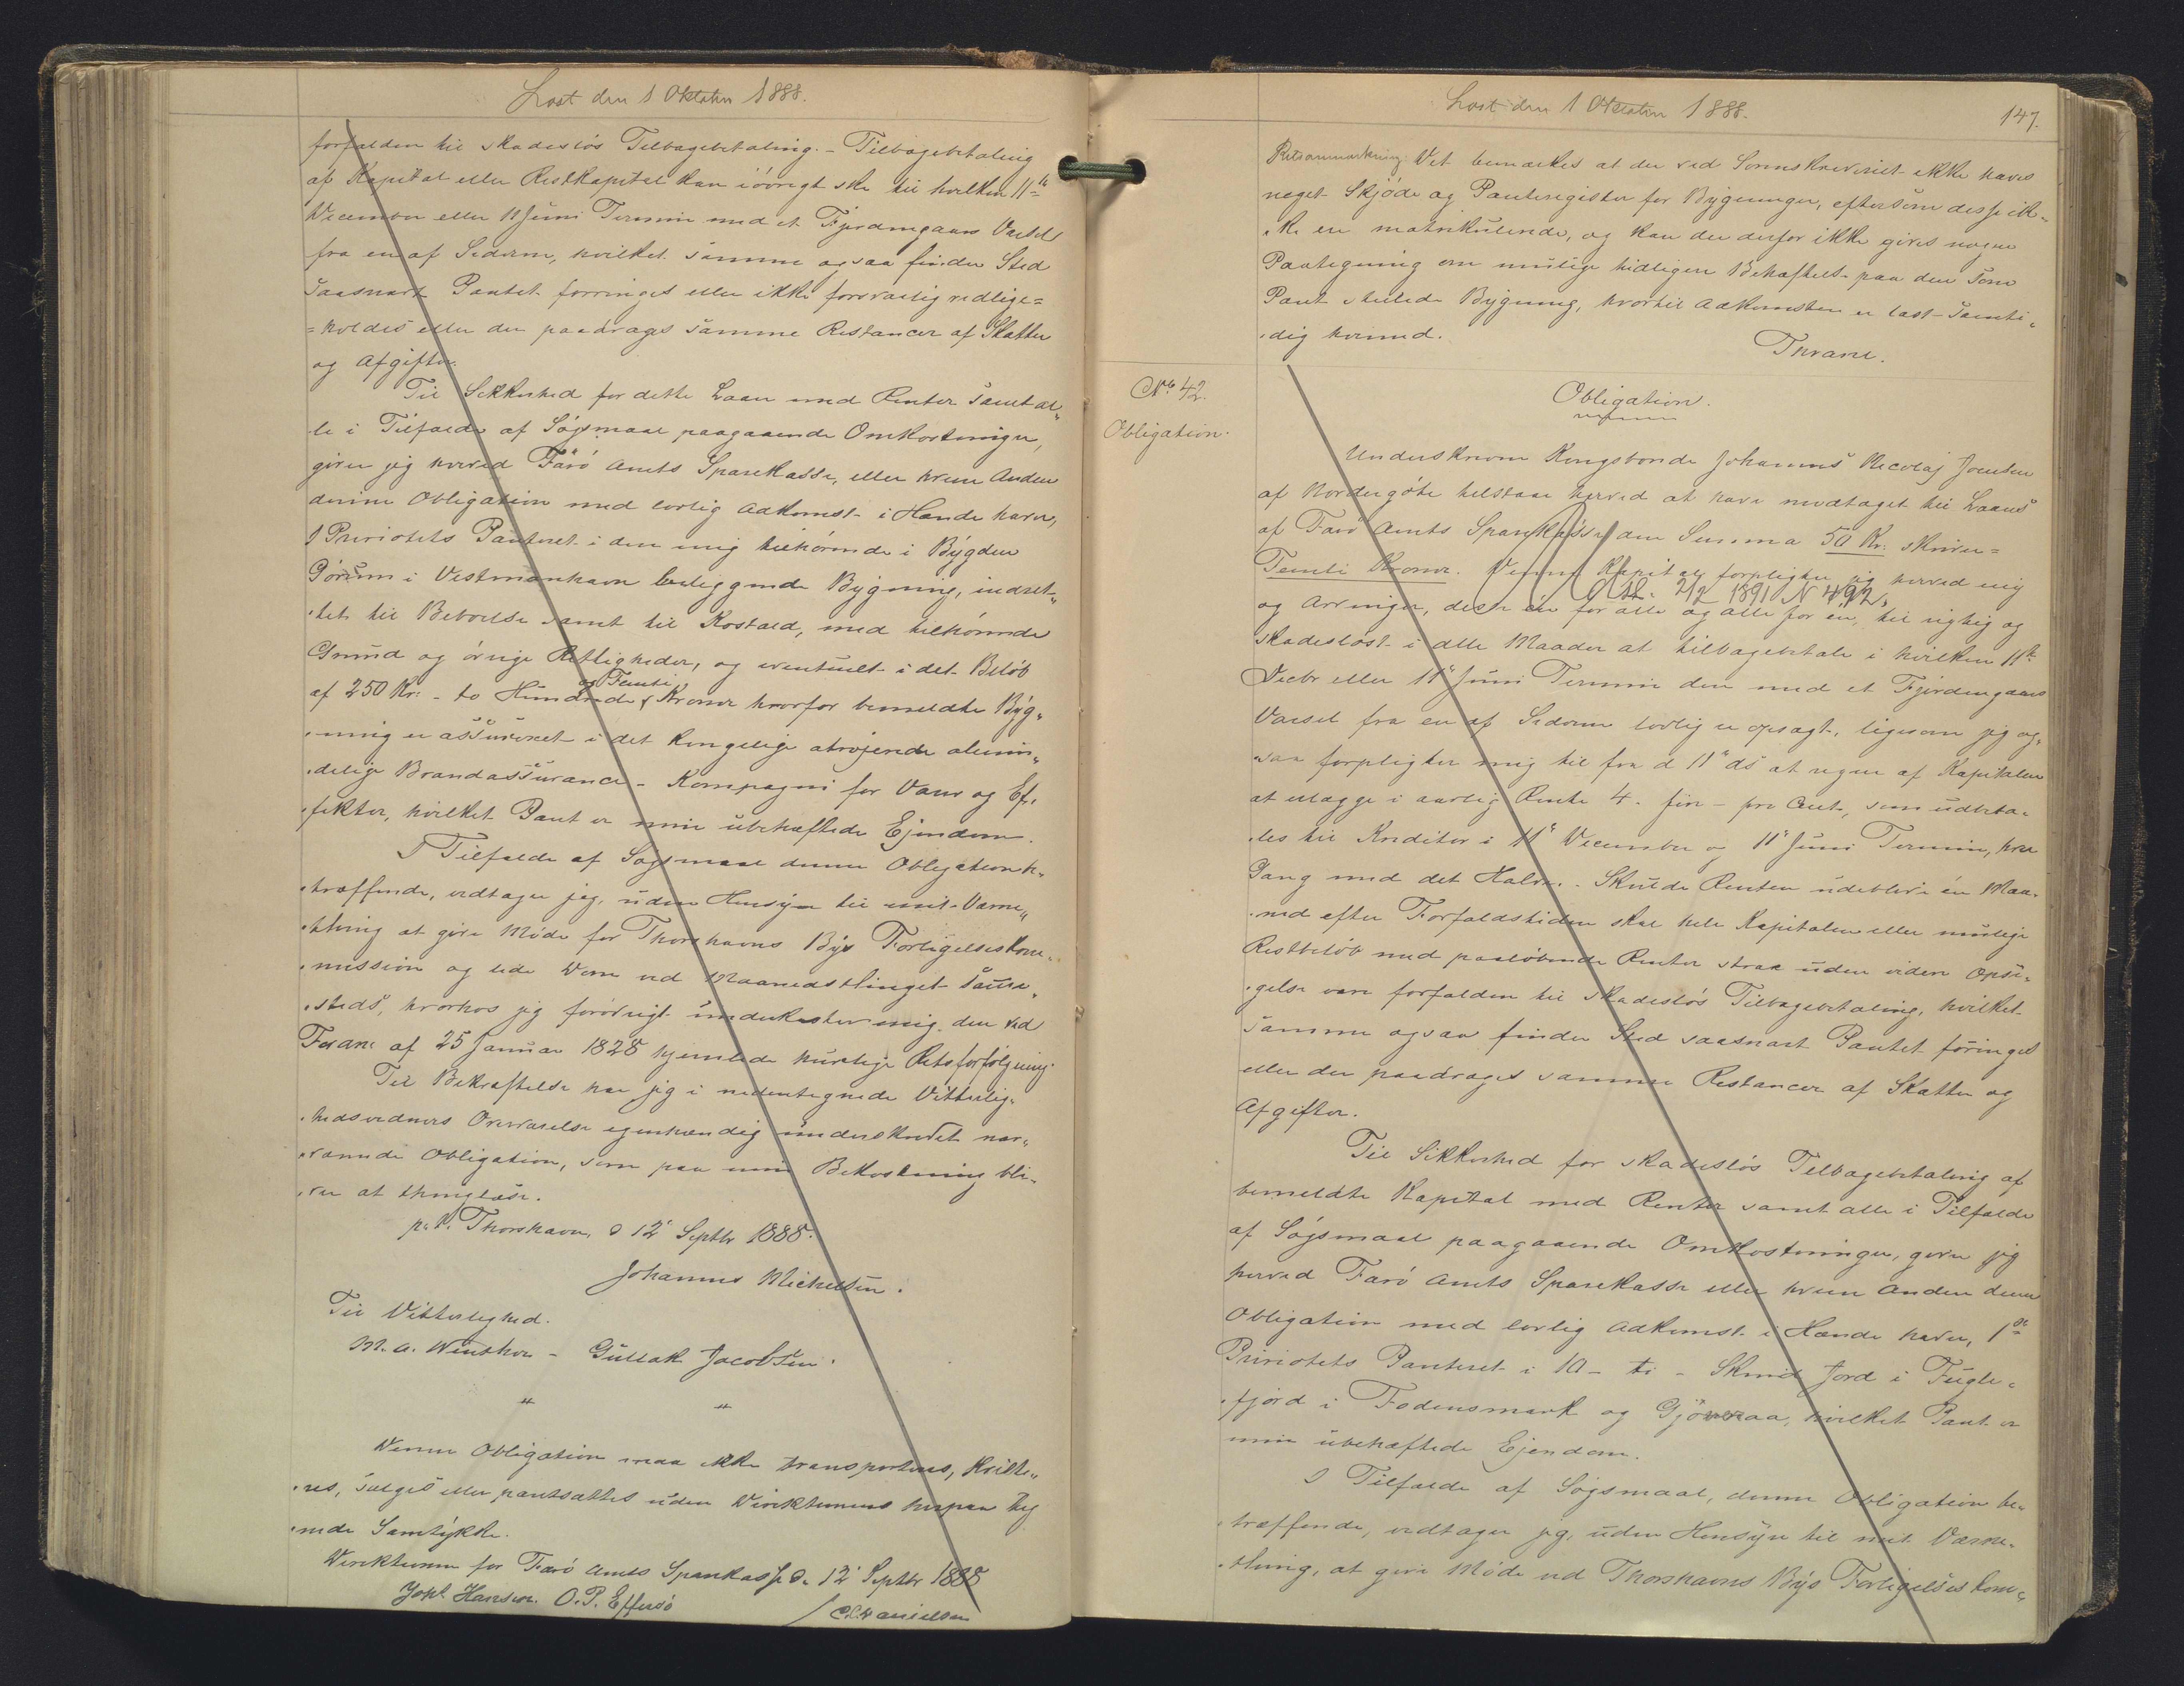 Læst den 1 Oktober 1888.
forfalden til skadesløs Tilbagebetaling. - Tilbagebetaling
af Kapital eller Restkapital kan iøvrigt ske til hvilken 11te
December eller 11 Juni Termin med et Fjerdingaars Varsel
fra en af Siderne, hvilket samme ogsaa finder Sted
saasnart Pantet forringes eller ikke forsvarlig vedlige=
=holdes eller der paadrages samme Restancer af Skatter
og Afgifter.
Til Sikkerhed for dette Laan med Renter samt al„
le i Tilfælde af Søgsmaal paagaaende Omkostninger,
giver jeg herved Færø Amts Sparekasse, eller hvem Anden
denne Obligation med lovlig Adkomst i Hænde haver,
1 Prioritets Panteret i den mig tilhørende i Bygden
Górum i Vestmanhavn beliggende Bygning, indret„
„tet til Beboelse samt til Kostald, med tilhørende
Grund og øvrige Rettigheder, og eventuelt i det Beløb
og Femti
af 250 Kr: - to Hundrede Kroner hvorfor bemeldte Byg„
„ning er assureret i det kongelige otrojerede almin„
„delige Brandassurance - Kompagni for Varer og Ef„
„fekter, hvilket Pant er min ubehæftede Ejendom.
I Tilfælde af Søgsmaal denne Obligation be„
„træffende, vedtager jeg, uden Hensyn til mit Værne„
„thing at give Møde for Thorshavns Bys Forligelseskom„
„mission og lide Dom ved Maanedsthinget samme„
„steds, hvorhos jeg forøvrigt underkaster mig den ved
Foran: af 25 Januar 1828 hjemlede hurtige Retsforfølgning.
Til Bekræftelse har jeg i nedentegnede Vitterlig„
„hedsvidners Overværelse egenhændig underskrevet nær„
„værende Obligation, som paa min Bekostning bli„
„ver at thinglæse.
p. t. Thorshavn, d 12 Septbr 1888.
Johannes Michelsen.
Til Vitterlighed.
M. A. Winther - Gullak Jacobsen.
" "
Denne Obligation maa ikke transporteres, kvitte„
„res, sælges eller pantsættes uden Direktionens herpaa teg
„nede Samtykke.
Direktionen for Færø Amts Sparekasse d. 12 Septbr 1888
Joh. Hansen. O. P. Effersø / C. C. Danielsen
Læst den 1 Oktober 1888.
147.
Retsanmærkning: Det bemærkes at der ved Sorenskriveriet ikke haves
noget Skjøde og Panteregister for Bygninger, eftersom disse ik„
„ke ere matrikulerede, og kan der derfor ikke gives nogen
Paategning om mulige tidligere Behæftelse paa den som
Pant stillede Bygning, hvortil Adkomsten er læst samti„
„dig hermed.
Thrane.
No 42.
Obligation.
Obligation.
Underskrevne Kongsbonde Johannes Nicolaj Joensen
af Nordergøte tilstaar herved at have modtaget til Laans
af Færø Amts Sparekasse den Summa 50 Kr: skriver=
Femti Kroner. Denne Kapital forpligter jeg herved mig
Afl. 2/2 1891 N 492.
og Arvinger, disse én for alle og alle for én, til rigtig og
skadesløst i alle Maader at tilbagebetale i hvilken 11te
Decbr eller 11te Juni Termin den med et Fjerdingaars
Varsel fra en af Siderne lovlig er opsagt, ligesom jeg og„
„saa forpligter mig til fra d 11te ds at regne af Kapitalen
at erlægge i aarlig Rente 4. fire - pro Cent, som udbeta„
„les til Kreditor i 11te December og 11te Juni Termin, hver
Gang med det Halve. - Skulde Renten udeblive én Maa„
„ned efter Forfaldstiden skal hele Kapitalen eller mulige
Restbeløb med paaløbende Renter strax uden videre Opsi„
„gelse være forfalden til skadesløs Tilbagebetaling, hvilket
samme ogsaa finder Sted saasnart Pantet foringes
eller der paadrages samme Restancer af Skatter og
Afgifter.
Til Sikkerhed for skadesløs Tilbagebetaling af
bemeldte Kapital med Renter samt alle i Tilfælde
af Søgsmaal paagaaende Omkostninger, giver jeg
herved Færø Amts Sparekasse eller hvem Anden denne
Obligation med lovlig Adkomst i Hænde haver, 1ste
Prioritets Panteret i 10 - ti - Skind Jord i Fugle„
„fjord i Fodensmark og Gjøveraa, hvilket Pant er
min ubehæftede Ejendom.
I Tilfælde af Søgsmaal, denne Obligation be„
„træffende, vedtager jeg, uden Hensyn til mit Værne„
„thing, at give Møde ved Thorshavns Bys Forligelseskom„